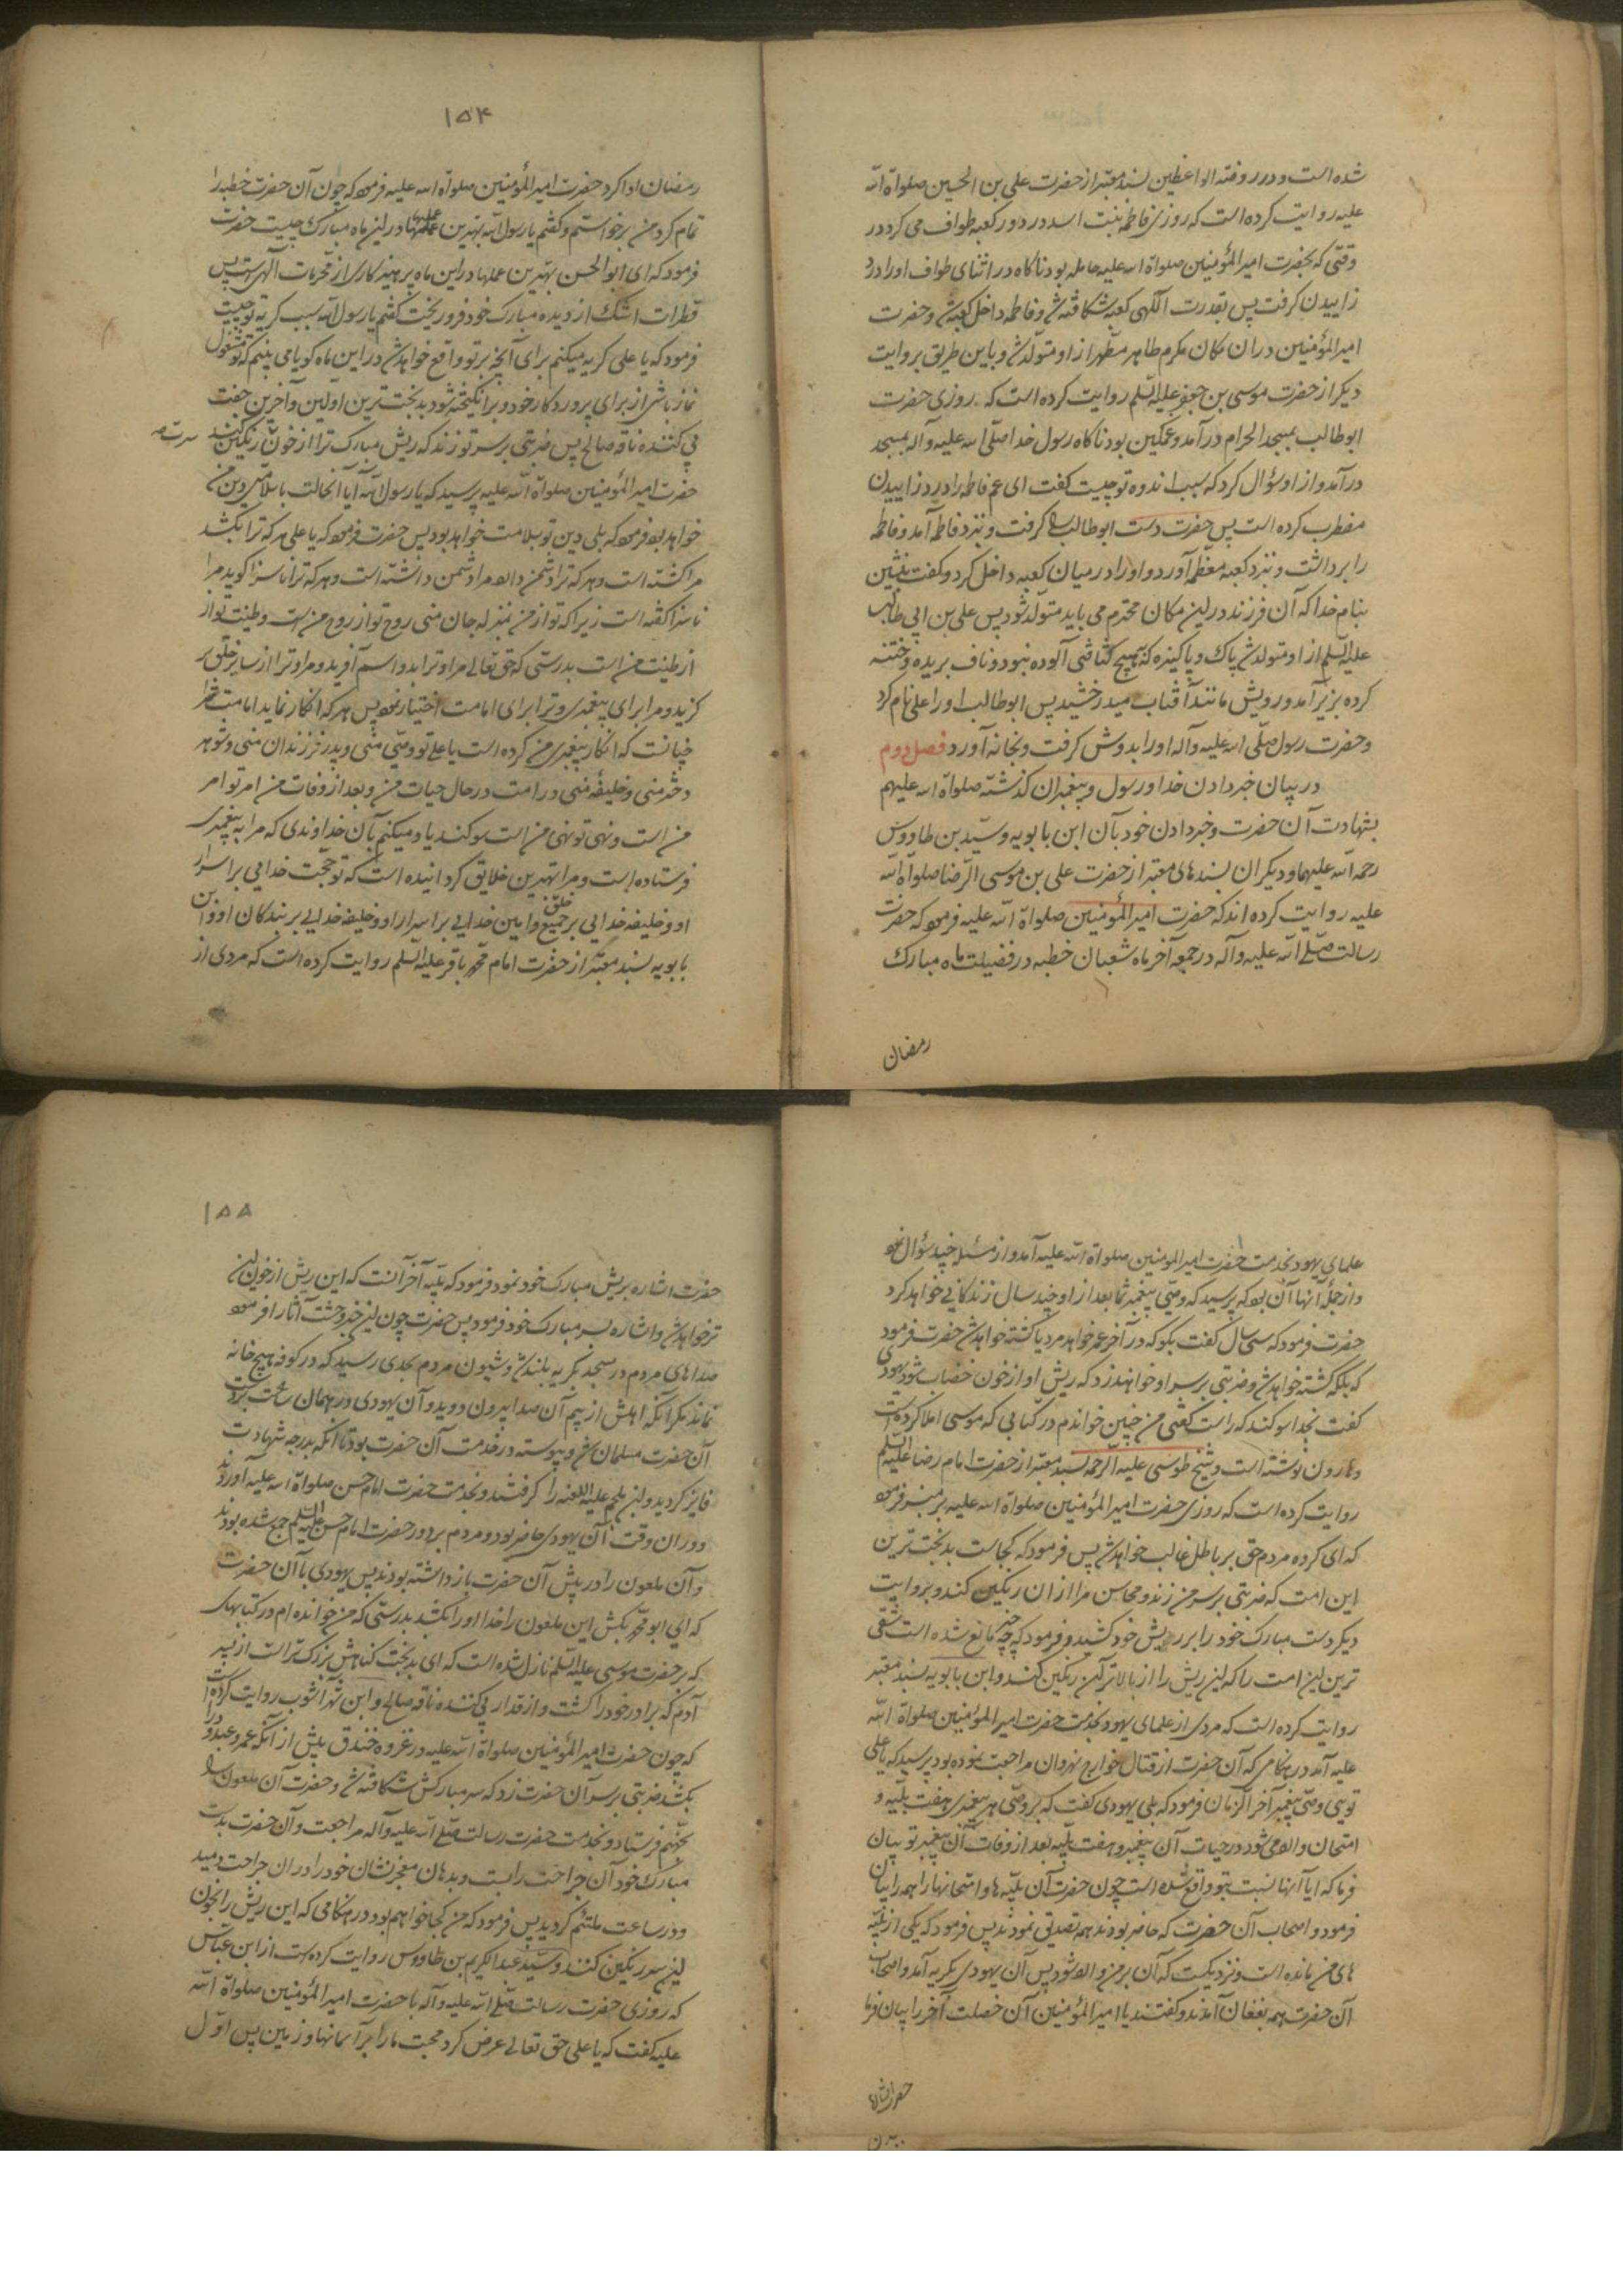 شده است و در روضة الواعظین بسند معتبر از حضرت علی بن الحسین صلواة الله
علیه روایت کرده است که روزی فاطمه بنت اسد در دور کعبه طواف می کرد در
وقتی که بحضرت امیر المؤمنین صلواة الله علیه حامله بود ناکاه در اثنای طواف او را درد
زاییدن کرفت پس بقدرت الهی کعبه شکافته شد و فاطمه داخل کعبه شد و حضرت
امیر المؤمنین در ان مکان مکرم طاهر مطهر از او متولد شد و باین طریق بروایت
دیکر از حضرت موسی بن جعفر علیه السلم روایت کرده است که روزی حضرت
ابو طالب بمسجد الحرام در آمد و غمکین بود ناکاه رسول خدا صلی الله علیه و آله بمسجد
در آمد و از او سؤال کرد که سبب اندوه تو چیست کفت ای عم فاطمه را درد زاییدن
مضطرب کرده است پس حضرت دست ابو طالب را کرفت و بنزد فاطمه آمد و فاطمه
را برداشت و بنزد کعبه معظمه آورد و او را در میان کعبه داخل کرد و کفت بنشین
بنام خدا که آن فرزند در این مکان محترم می باید متولد شود پس علی بن ابی طالب
علیه السلم از او متولد شد پاک و پاکیزه که بهیچ کثافتی آلوده نبود و ناف بریده و ختنه
کرده بزیر آمد و رویش مانند آفتاب میدرخشید پس ابو طالب او را علی نام کرد
و حضرت رسول صلی الله علیه و آله او را بدوش کرفت و بخانه آورد فصل دوم
در بیان خبر دادن خدا و رسول و پیغمبران کذشته صلواة الله علیهم
بشهادت آن حضرت و خبر دادن خود بآن ابن بابویه و سید بن طاووس
رحمه الله علیهما و دیکران بسندهای معتبر از حضرت علی بن موسی الرضا صلواة الله
علیه روایت کرده اند که حضرت امیر المؤمنین صلواة الله علیه فرمود که حضرت
رسالت صلی الله علیه و آله در جمعه آخر ماه شعبان خطبه در فضیلت ماه مبارک
رمضان
۱۵۴
رمضان ادا کرد حضرت امیر المؤمنین صلواة الله علیه فرمود که چون آن حضرت خطبه را
تمام کرد من برخواستم و کفتم یا رسول الله بهترین عملها در این ماه مبارک چیست حضرت
فرمود که ای ابو الحسن بهترین عملها در این ماه پرهیزکاری از محرمات الهی است پس
قطرات اشک از دیده مبارک خود فرو ریخت کفتم یا رسول الله سبب کریه تو چیست
فرمود که یا علی کریه میکنم برای آنچه بر تو واقع خواهد شد در این ماه کویا می بینم که تو مشغول
نماز باشی از برای پروردکار خود و برانکیخته شود بدبخت ترین اولین و آخرین جفت
پی کننده ناقه صالح پس ضربتی بر سر تو زند که ریش مبارک ترا از خون سرت رنکین کند
حضرت امیر المؤمنین صلواة الله علیه پرسید که یا رسول الله آیا آنحالت با سلامتی دین من
خواهد بود فرمود که بلی دین تو بسلامت خواهد بود پس حضرت فرمود که یا علی هر که ترا بکشد
مرا کشته است و هر که ترا دشمن دارد مرا دشمن داشته است و هر که ترا ناسزا کوید مرا
ناسزا کفته است زیرا که تو از من بمنزله جان منی روح تو از روح من است و طینت تو از
از طینت من است بدرستی که حق تعالی مرا و ترا بدو اسم آفرید و مرا و ترا از سایر خلق بر
کزید و مرا برای پیغمبری و ترا برای امامت اختیار نمود پس هر که انکار نماید امامت ترا
چنانست که انکار پیغمبری من کرده است یا علی تو وصی منی و پدر فرزندان منی و شوهر
دختر منی و خلیفه منی در امت در حال حیات من و بعد از وفات من امر تو امر
من است و نهی تو نهی من است سوکند یاد میکنم بآن خداوندی که مرا به پیغمبری
فرستاده است و مرا بهترین خلایق کردانیده است که تو حجت خدایی بر اسرار
او و خلیفه خدایی بر جمیع خلق و امین خدایی بر اسرار او و خلیفه خدایی بر بندکان او و ابن
بابویه بسند معتبر از حضرت امام محمد باقر علیه السلم روایت کرده است که مردی از
علمای یهود بخدمت حضرت امیر المومنین صلواة الله علیه آمد و از مسئله چند سؤال نمود
و از جمله آنها آن بود که پرسید که وصی پیغمبر شما بعد از او چند سال زندکانی خواهد کرد
حضرت فرمود که سی سال کفت بکو که در آخر عمر خواهد مرد یا کشته خواهد شد حضرت فرمود
که بلکه کشته خواهد شد و ضربتی بر سر او خواهند زد که ریش او از خون خضاب شود یهودی
کفت بخدا سوکند که راست کفتی من چنین خواندم در کتابی که موسی املا کرده است
و هارون نوشته است و شیخ طوسی علیه الرحمه بسند معتبر از حضرت امام رضا علیه السلم
روایت کرده است که روزی حضرت امیر المؤمنین صلواة الله علیه بر منبر فرمود
که ای کروه مردم حق بر باطل غالب خواهد شد پس فرمود که کجاست بدبخت ترین
این امت که ضربتی بر سر من زند و محاسن مرا از ان رنکین کند و بروایت
دیکر دست مبارک خود را بر ریش خود کشید و فرمود که چه چیز مانع شده است شقی
ترین این امت را که این ریش را از بالاتر این رنکین کند و ابن بابویه بسند معتبر
روایت کرده است که مردی از علمای یهود بخدمت حضرت امیر المؤمنین صلواة الله
علیه آمد در هنکامی که آن حضرت از قتال خوارج نهروان مراجعت نموده بود پرسید که یا علی
تویی وصی پیغمبر آخر الزمان فرمود که بلی یهودی کفت که بر وصی هر پیغمبری هفت بلیه و
امتحان وارد می شود در حیات آن پیغمبر و هفت بلیه بعد از وفات آن پیغمبر تو بیان
فرما که ایا آنها نسبت بتو واقع شده است چون حضرت آن بلیه ها و امتحانها را همه را بیان
فرمود و اصحاب آن حضرت که حاضر بودند همه تصدیق نمودند پس فرمود که یکی از بلیه
های من مانده است و نزدیکست که آن بر من وارد شود پس آن یهودی بکریه آمد و اصحاب
آن حضرت همه بفغان آمدند و کفتند یا امیر المؤمنین آن خصلت آخر را بیان فرما
۱۵۵
حضرت اشاره بریش مبارک خود نمود فرمود که بلیه آخر آنست که این ریش از خون این
تر خواهد شد و اشاره بسر مبارک خود فرمود پس حضرت چون این خبر وحشت آثار را فرمود
صداهای مردم در مسجد بکریه بلند شد و شیون مردم بحدی رسید که در کوفه هیچ خانه
نماند مکر آنکه اهلش از بیم آن صدا بیرون دوید و آن یهودی در همان ساعت بر دست
آن حضرت مسلمان شد و پیوسته در خدمت آن حضرت بود تا آنکه بدرجه شهادت
فایز کردید و ابن ملجم علیه اللعنه را کرفتند و بخدمت حضرت امام حسن صلواة الله علیه آوردند
و در ان وقت آن یهودی حاضر بود و مردم بر دور حضرت امام حسن علیه السلم جمع شده بودند
و آن ملعون را در پیش آن حضرت بازداشته بودند پس یهودی با آن حضرت
که ای ابو محمد بکش این ملعون را خدا او را بکشد بدرستی که من خوانده ام در کتابهای
که بر حضرت موسی علیه السلم نازل شده است که ای بدبخت کناهش بزرک تر است از پسر
آدم که برادر خود را کشت و از قدار پی کننده ناقه صالح و ابن شهر آشوب روایت کرده است
که چون حضرت امیر المؤمنین صلواة الله علیه در غزوه خندق پیش از آنکه عمرو عبدود را
بکشد ضربتی بر سر آن حضرت زد که سر مبارکش شکافته شد و حضرت آن ملعون را
بجهنم فرستاد و بخدمت حضرت رسالت صلی الله علیه و آله مراجعت و آن حضرت بدست
مبارک خود آن جراحت را بست و بدهان معجز نشان خود را در ان جراحت دمید
و در ساعت ملتئم کردید پس فرمود که من کجا خواهم بود در هنکامی که این ریش را بخون
این سر رنکین کنند و سید عبد الکریم بن طاووس روایت کرده است از ابن عباس
که روزی حضرت رسالت صلی الله علیه و آله با حضرت امیر المؤمنین صلواة الله
علیه کفت که یا علی حق تعالی عرض کرد محبت ما را بر آسمانها و زمین پس اول